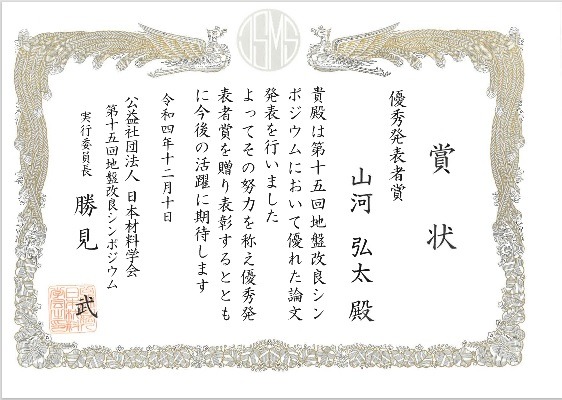 JSMS
賞状
優秀発表者賞
山河 弘太 殿
貴殿は第十五回地盤改良シン
ポジウムにおいて優れた論文
発表を行いました
よってその努力を称え優秀発
表者賞を贈り表彰するととも
に今後の活躍に期待します
令和四年十二月十日
公益社団法人 日本材料学会
第十五回地盤改良シンポジウム
実行委員長 勝見 武